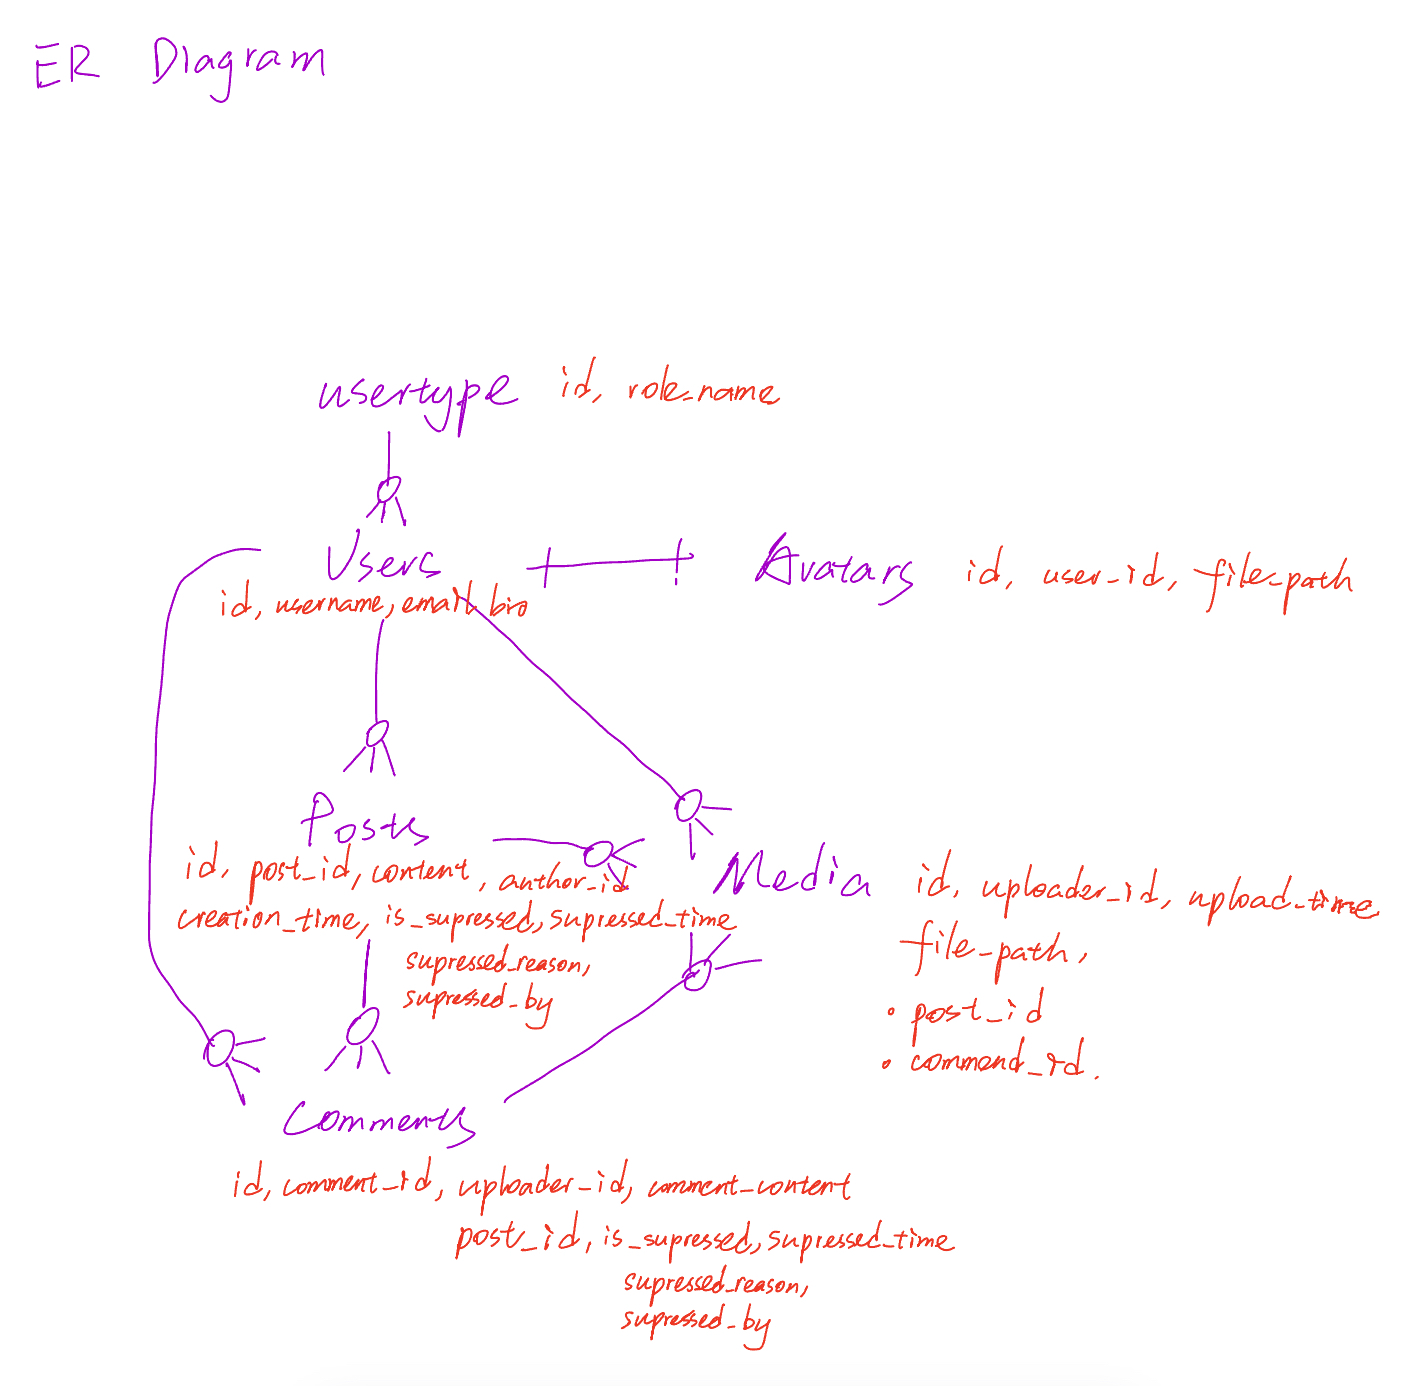 ER Diagram
usertype id, role_name
Users
id, username, email, bio
Avatars id, user_id, file_path
Posts
id, post_id, content, author_id
creation_time, is_supressed, supressed_time
supressed_reason,
supressed_by
Media id, uploader_id, upload_time
file_path,
• post_id
• commend_id.
Comments
id, comment_id, uploader_id, comment_content
post_id, is_supressed, supressed_time
supressed_reason,
supressed_by